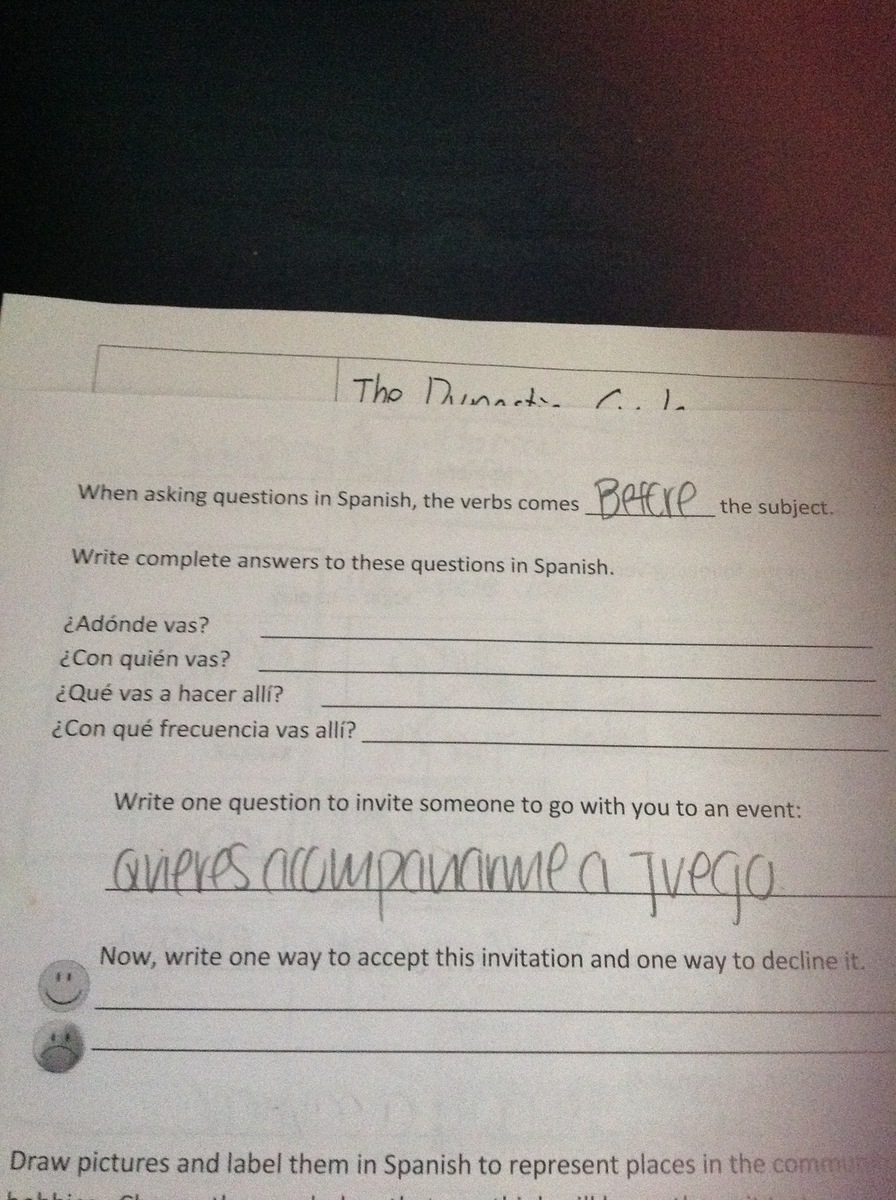 The
When asking questions in Spanish, the verbs comes Before the subject.
Write complete answers to these questions in Spanish.
¿Adónde vas?
¿Con quién vas?
¿Qué vas a hacer allí?
¿Con qué frecuencia vas allí?
Write one question to invite someone to go with you to an event:
Quieres acompanarme a Juego
Now, write one way to accept this invitation and one way to decline it.
Draw pictures and label them in Spanish to represent places in the